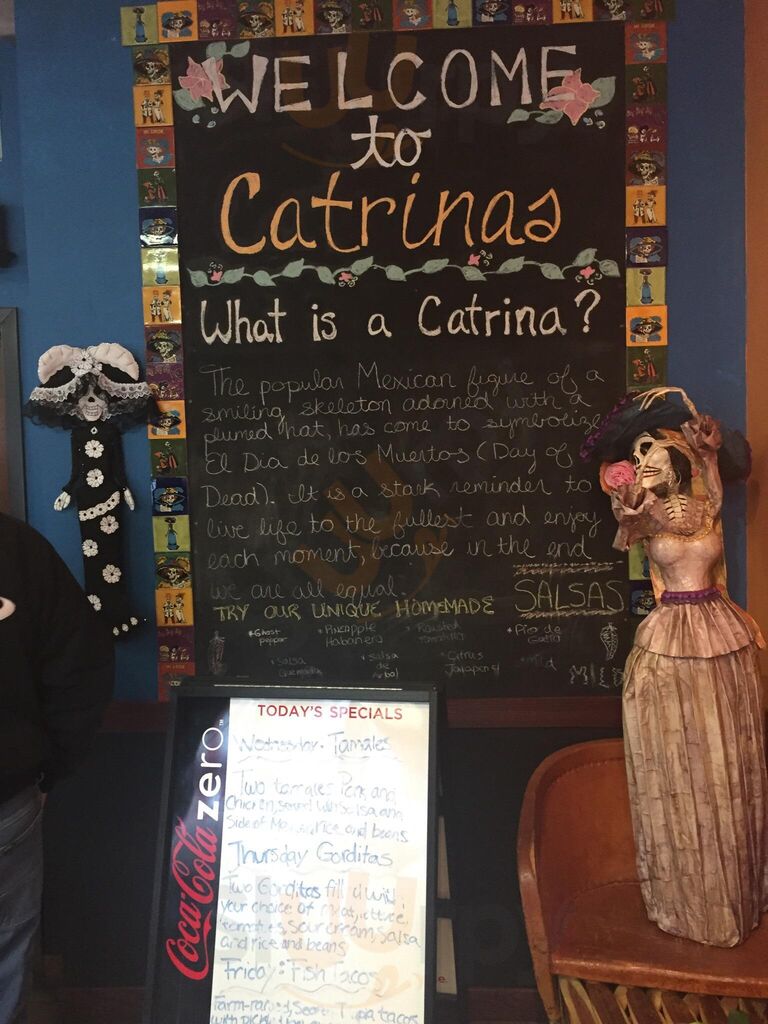 WELCOME
to
Catrinas
What is a Catrina?
The popular Mexican figure of a
smiling skeleton adorned with a
plumed hat, has come to symbolize
El Dia de los Muertos (Day of
Dead). It is a stark reminder to
live life to the fullest and enjoy
each moment, because in the end
we are all equal.
TRY OUR UNIQUE HOMEMADE SALSAS
• Ghost pepper
• Pineapple Habanero
• Roasted
• Pico de
• Salsa
• Salsa de Arbol
• Citrus Jalapeno
MILD
Coca-Cola zero
TODAY'S SPECIALS
Wednesday: Tamales
Two tamales Pork and
Chicken, served with Salsa and
Side of rice and beans
Thursday Gorditas
Two Gorditas filled with
your choice of meat, lettuce,
tomatoes, sour cream, salsa
and rice and beans
Friday: Fish Tacos
Farm-raised tacos
with